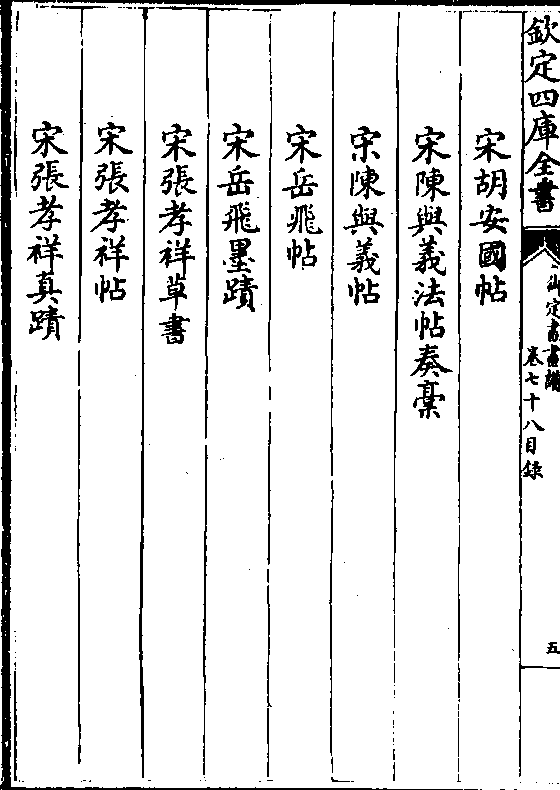 欽定四庫全書
御定書畫譜
卷七十八目録
五
宋胡安國帖
宋陳與義法帖奏稾
宋陳與義帖
宋岳飛帖
宋岳飛墨蹟
宋張孝祥草書
宋張孝祥帖
宋張孝祥真蹟